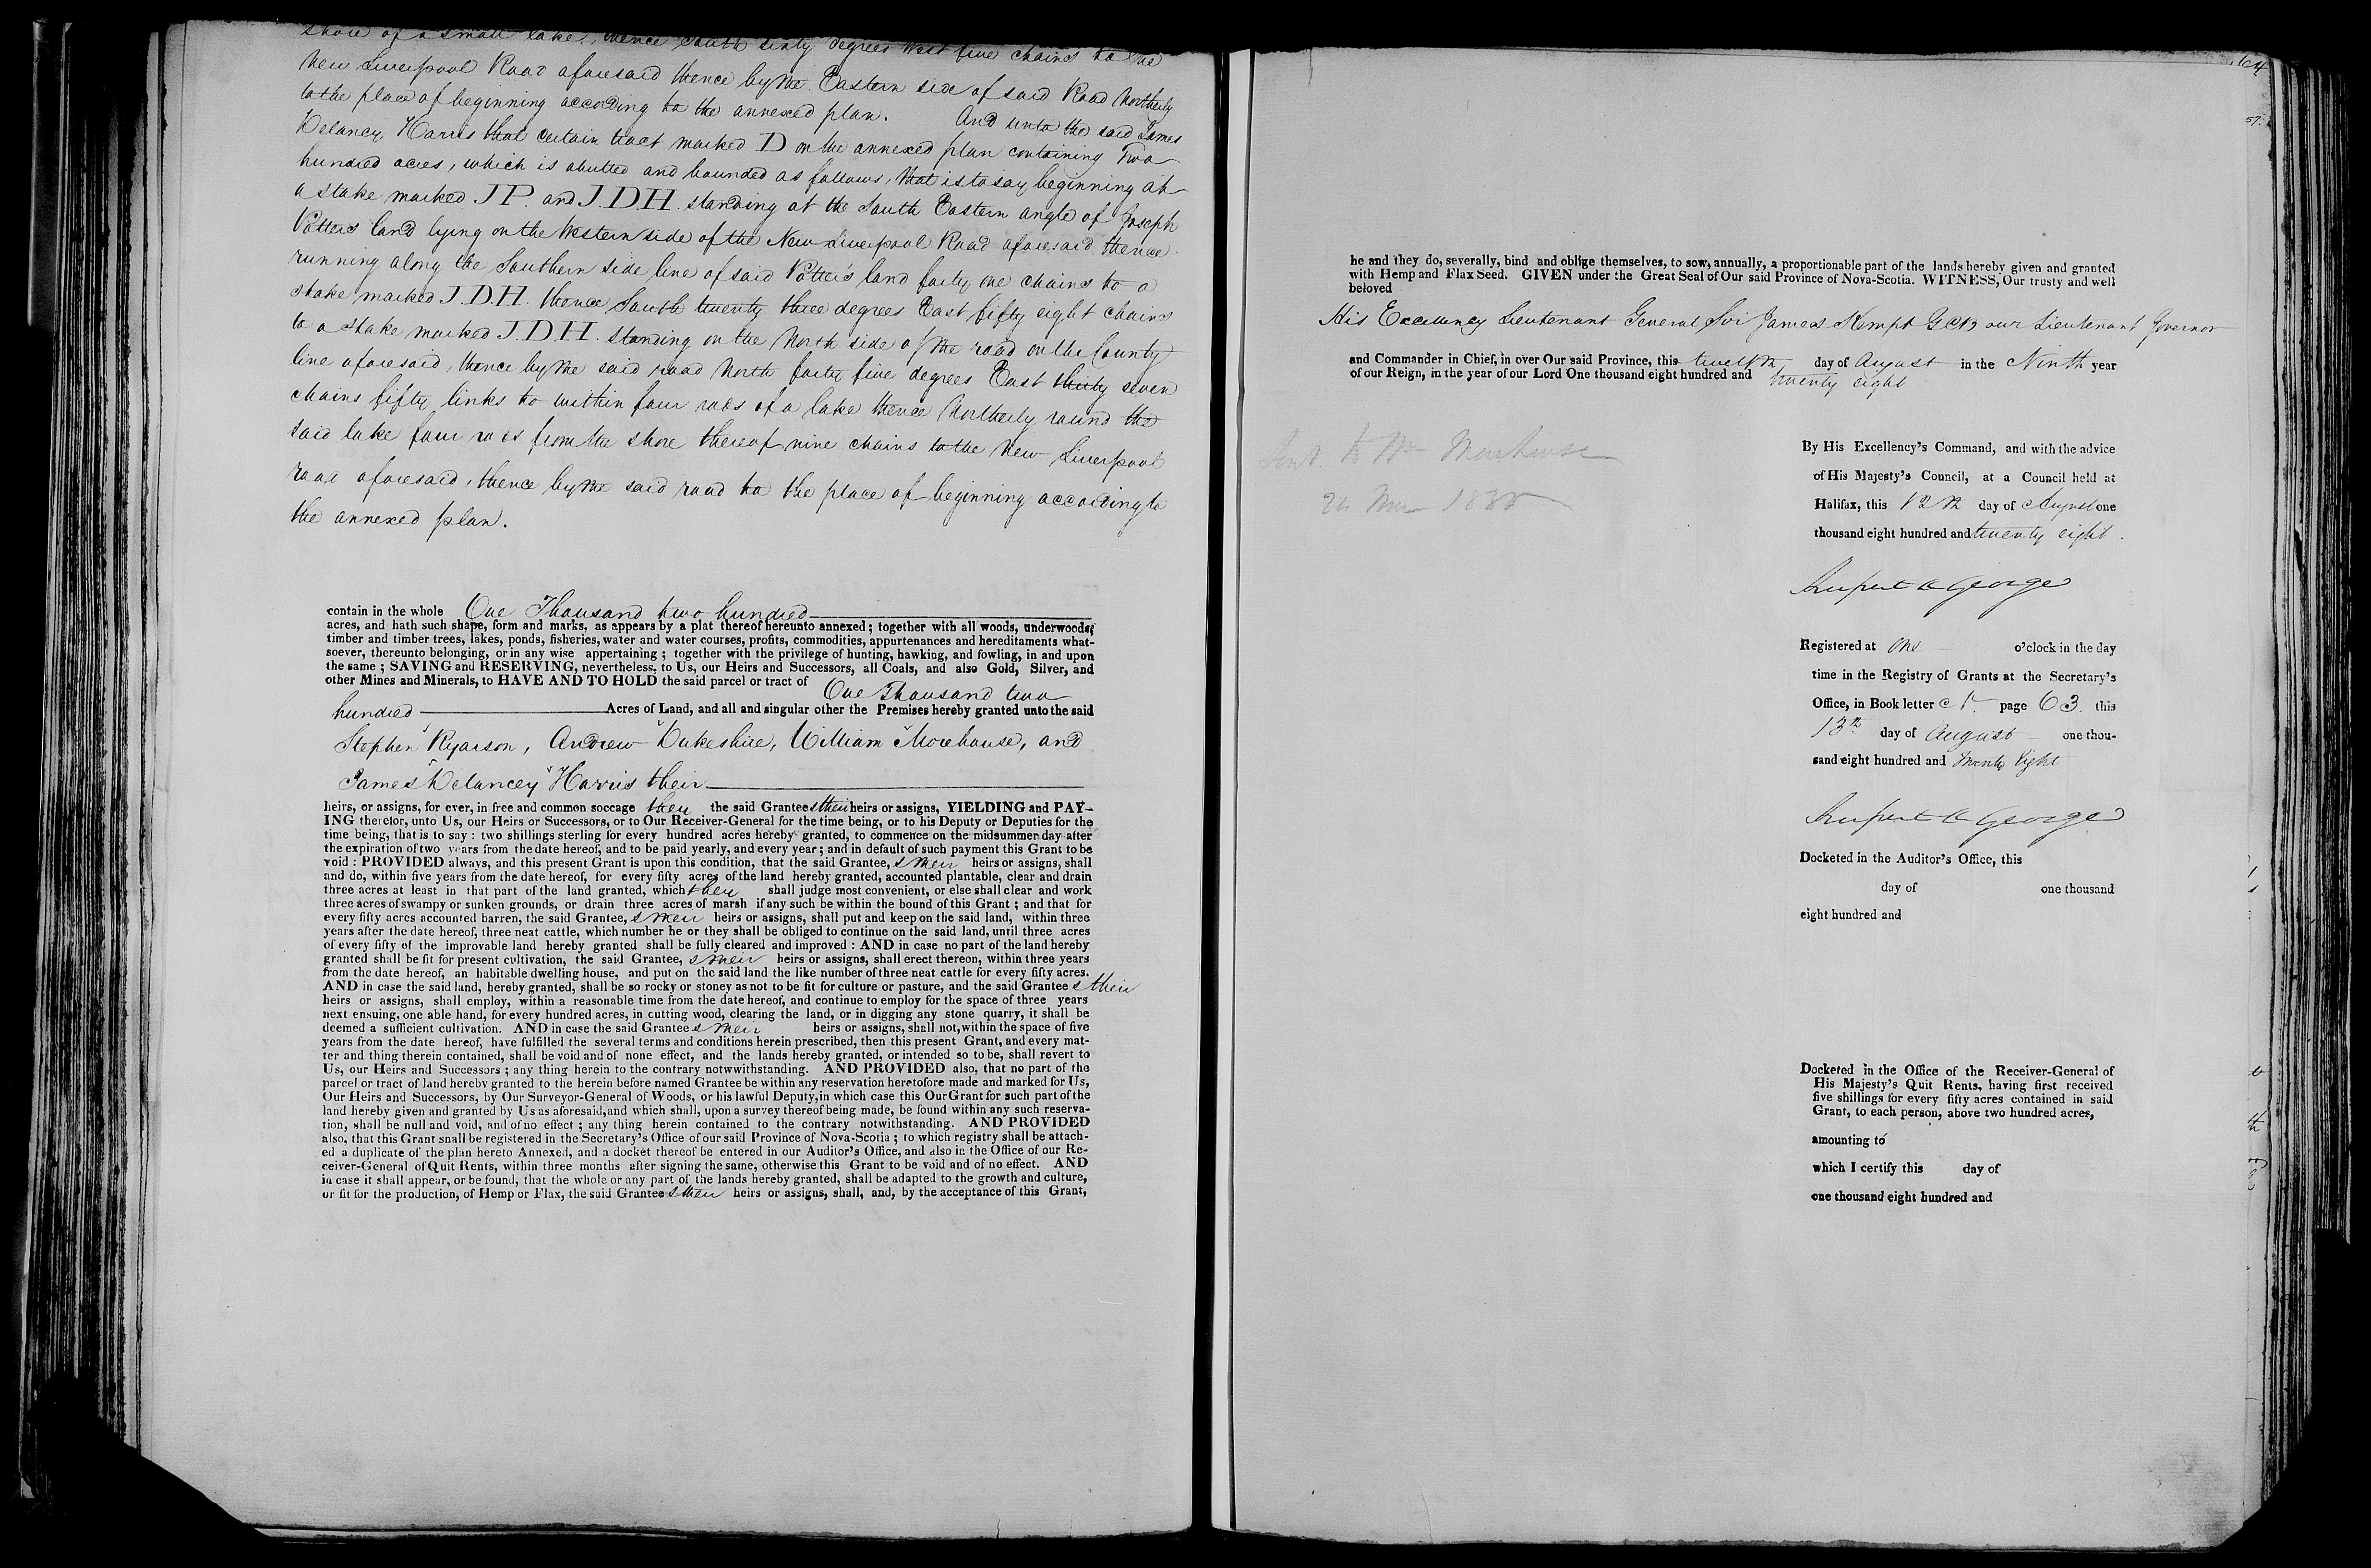 shore of a small lake, thence South sixty degrees West five chains to the
New Liverpool Road aforesaid thence by the Eastern side of said Road Northerly
to the place of beginning according to the annexed plan. And unto the said James
Delancey Harris that certain tract marked D on the annexed plan containing Two
hundred acres, which is abutted and bounded as follows, that is to say, beginning at
a stake marked J P. and J. D. H. standing at the South Eastern angle of Joseph
Potters land lying on the Western side of the New Liverpool Road aforesaid thence
running along the Southern side line of said Potter's land forty one chains to a
stake marked J. D. H. thence South twenty three degrees East fifty eight chains
to a stake marked J. D. H. standing on the North side of the road on the County
line aforesaid, thence by the said road North forty five degrees East thirty seven
chains fifty links to within four rods of a lake thence Northerly round the
said lake four rods from the shore thereof nine chains to the New Liverpool
road aforesaid, thence by the said road to the place of beginning according to
the annexed plan.
contain in the whole One Thousand two hundred
acres, and hath such shape, form and marks, as appears by a plat thereof hereunto annexed; together with all woods, underwoods,
timber and timber trees, lakes, ponds, fisheries, water and water courses, profits, commodities, appurtenances and hereditaments what-
soever, thereunto belonging, or in any wise appertaining; together with the privilege of hunting, hawking, and fowling, in and upon
the same; SAVING and RESERVING, nevertheless, to Us, our Heirs and Successors, all Coals, and also Gold, Silver, and
other Mines and Minerals, to HAVE AND TO HOLD the said parcel or tract of One Thousand two
hundred Acres of Land, and all and singular other the Premises hereby granted unto the said
Stephen Ryarson, Andrew Dukeshire, William Morehouse, and
James Delancey Harris their
heirs, or assigns, for ever, in free and common soccage they the said Grantees their heirs or assigns, YIELDING and PAY-
ING therefor, unto Us, our Heirs or Successors, or to Our Receiver-General for the time being, or to his Deputy or Deputies for the
time being, that is to say: two shillings sterling for every hundred acres hereby granted, to commence on the midsummer day after
the expiration of two years from the date hereof, and to be paid yearly, and every year; and in default of such payment this Grant to be
void: PROVIDED always, and this present Grant is upon this condition, that the said Grantee, s their heirs or assigns, shall
and do, within five years from the date hereof, for every fifty acres of the land hereby granted, accounted plantable, clear and drain
three acres at least in that part of the land granted, which they shall judge most convenient, or else shall clear and work
three acres of swampy or sunken grounds, or drain three acres of marsh if any such be within the bound of this Grant; and that for
every fifty acres accounted barren, the said Grantee, s their heirs or assigns, shall put and keep on the said land, within three
years after the date hereof, three neat cattle, which number he or they shall be obliged to continue on the said land, until three acres
of every fifty of the improvable land hereby granted shall be fully cleared and improved: AND in case no part of the land hereby
granted shall be fit for present cultivation, the said Grantee, s their heirs or assigns, shall erect thereon, within three years
from the date hereof, an habitable dwelling house, and put on the said land the like number of three neat cattle for every fifty acres.
AND in case the said land, hereby granted, shall be so rocky or stoney as not to be fit for culture or pasture, and the said Grantee s their
heirs or assigns, shall employ, within a reasonable time from the date hereof, and continue to employ for the space of three years
next ensuing, one able hand, for every hundred acres, in cutting wood, clearing the land, or in digging any stone quarry, it shall be
deemed a sufficient cultivation. AND in case the said Grantee s their heirs or assigns, shall not, within the space of five
years from the date hereof, have fulfilled the several terms and conditions herein prescribed, then this present Grant, and every mat-
ter and thing therein contained, shall be void and of none effect, and the lands hereby granted, or intended so to be, shall revert to
Us, our Heirs and Successors; any thing herein to the contrary notwwithstanding. AND PROVIDED also, that no part of the
parcel or tract of land hereby granted to the herein before named Grantee be within any reservation heretofore made and marked for Us,
Our Heirs and Successors, by Our Surveyor-General of Woods, or his lawful Deputy, in which case this Our Grant for such part of the
land hereby given and granted by Us as aforesaid, and which shall, upon a survey thereof being made, be found within any such reserva-
tion, shall be null and void, and of no effect; any thing herein contained to the contrary notwithstanding. AND PROVIDED
also, that this Grant shall be registered in the Secretary's Office of our said Province of Nova-Scotia; to which registry shall be attach-
ed a duplicate of the plan hereto Annexed, and a docket thereof be entered in our Auditor's Office, and also in the Office of our Re-
ceiver-General of Quit Rents, within three months after signing the same, otherwise this Grant to be void and of no effect. AND
in case it shall appear, or be found, that the whole or any part of the lands hereby granted, shall be adapted to the growth and culture,
or fit for the production, of Hemp or Flax, the said Grantee s their heirs or assigns, shall, and, by the acceptance of this Grant,
he and they do, severally, bind and oblige themselves, to sow, annually, a proportionable part of the lands hereby given and granted
with Hemp and Flax Seed. GIVEN under the Great Seal of Our said Province of Nova-Scotia. WITNESS, Our trusty and well
beloved
His Excellency Lieutenant General Sir James Kempt GCB our Lieutenant Governor
and Commander in Chief, in over Our said Province, this twelfth day of August in the Ninth year
of our Reign, in the year of our Lord One thousand eight hundred and twenty eight
Sent to Wm Morehouse
By His Excellency's Command, and with the advice
of His Majesty's Council, at a Council held at
Halifax, this 12th day of August one
thousand eight hundred and twenty eight.
Rupert D George
Registered at One o'clock in the day
time in the Registry of Grants at the Secretary's
Office, in Book letter page 63 this
13th day of August one thou-
sand eight hundred and Twenty Eight
Rupert D George
Docketed in the Auditor's Office, this
day of one thousand
eight hundred and
Docketed in the Office of the Receiver-General of
His Majesty's Quit Rents, having first received
five shillings for every fifty acres contained in said
Grant, to each person, above two hundred acres,
amounting to
which I certify this day of
one thousand eight hundred and